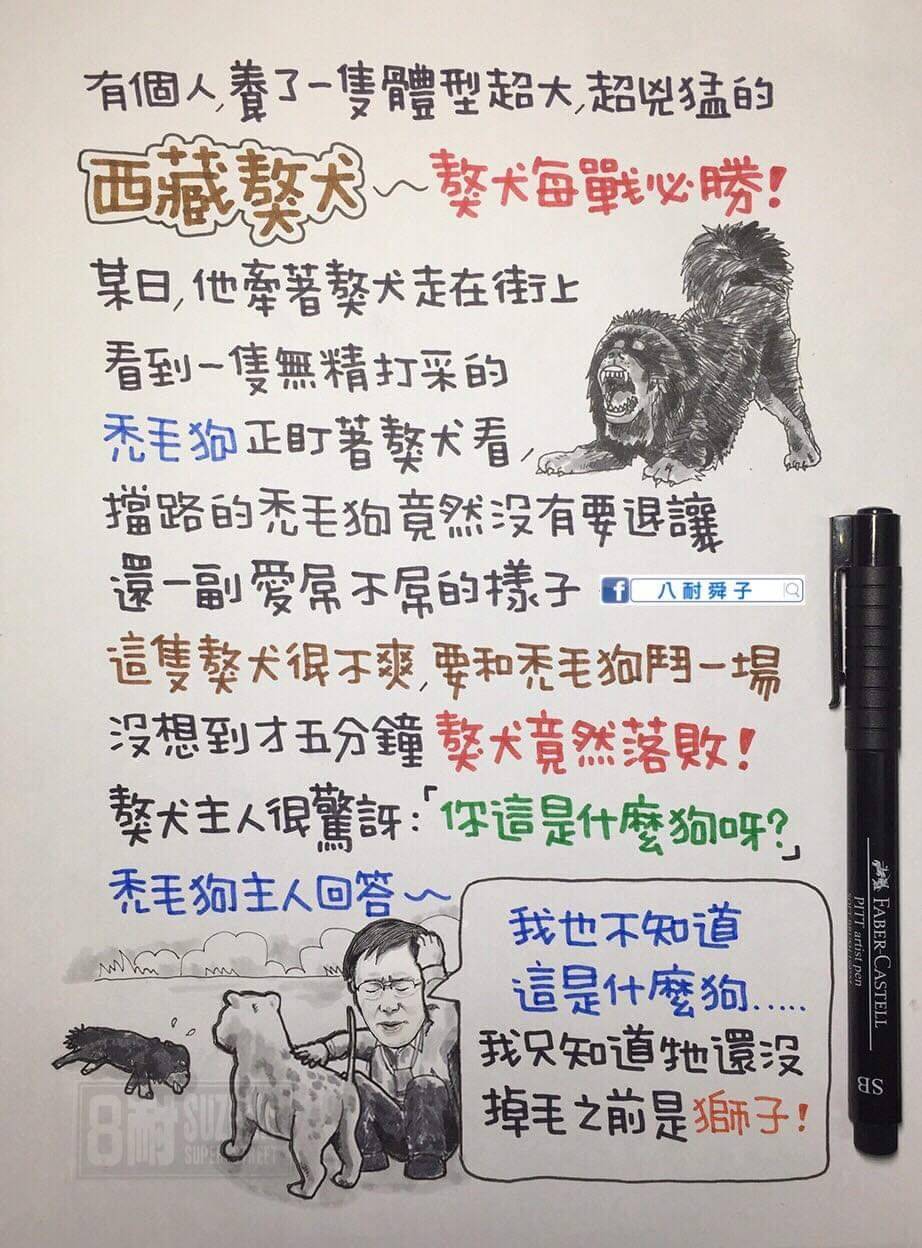 有個人,養了一隻體型超大,超兇猛的
西藏獒犬～獒犬每戰必勝!
某日,他牽著獒犬走在街上
看到一隻無精打采的
禿毛狗正盯著獒犬看,
擋路的禿毛狗竟然沒有要退讓
還一副愛屌不屌的樣子
f 八耐舜子
這隻獒犬很不爽,要和禿毛狗鬥一場
沒想到才五分鐘獒犬竟然落敗!
獒犬主人很驚訝:「你這是什麼狗呀?」
禿毛狗主人回答～
我也不知道
這是什麼狗.....
我只知道牠還沒
掉毛之前是獅子!
8耐
FABER-CASTELL
PITT artist pen
SB